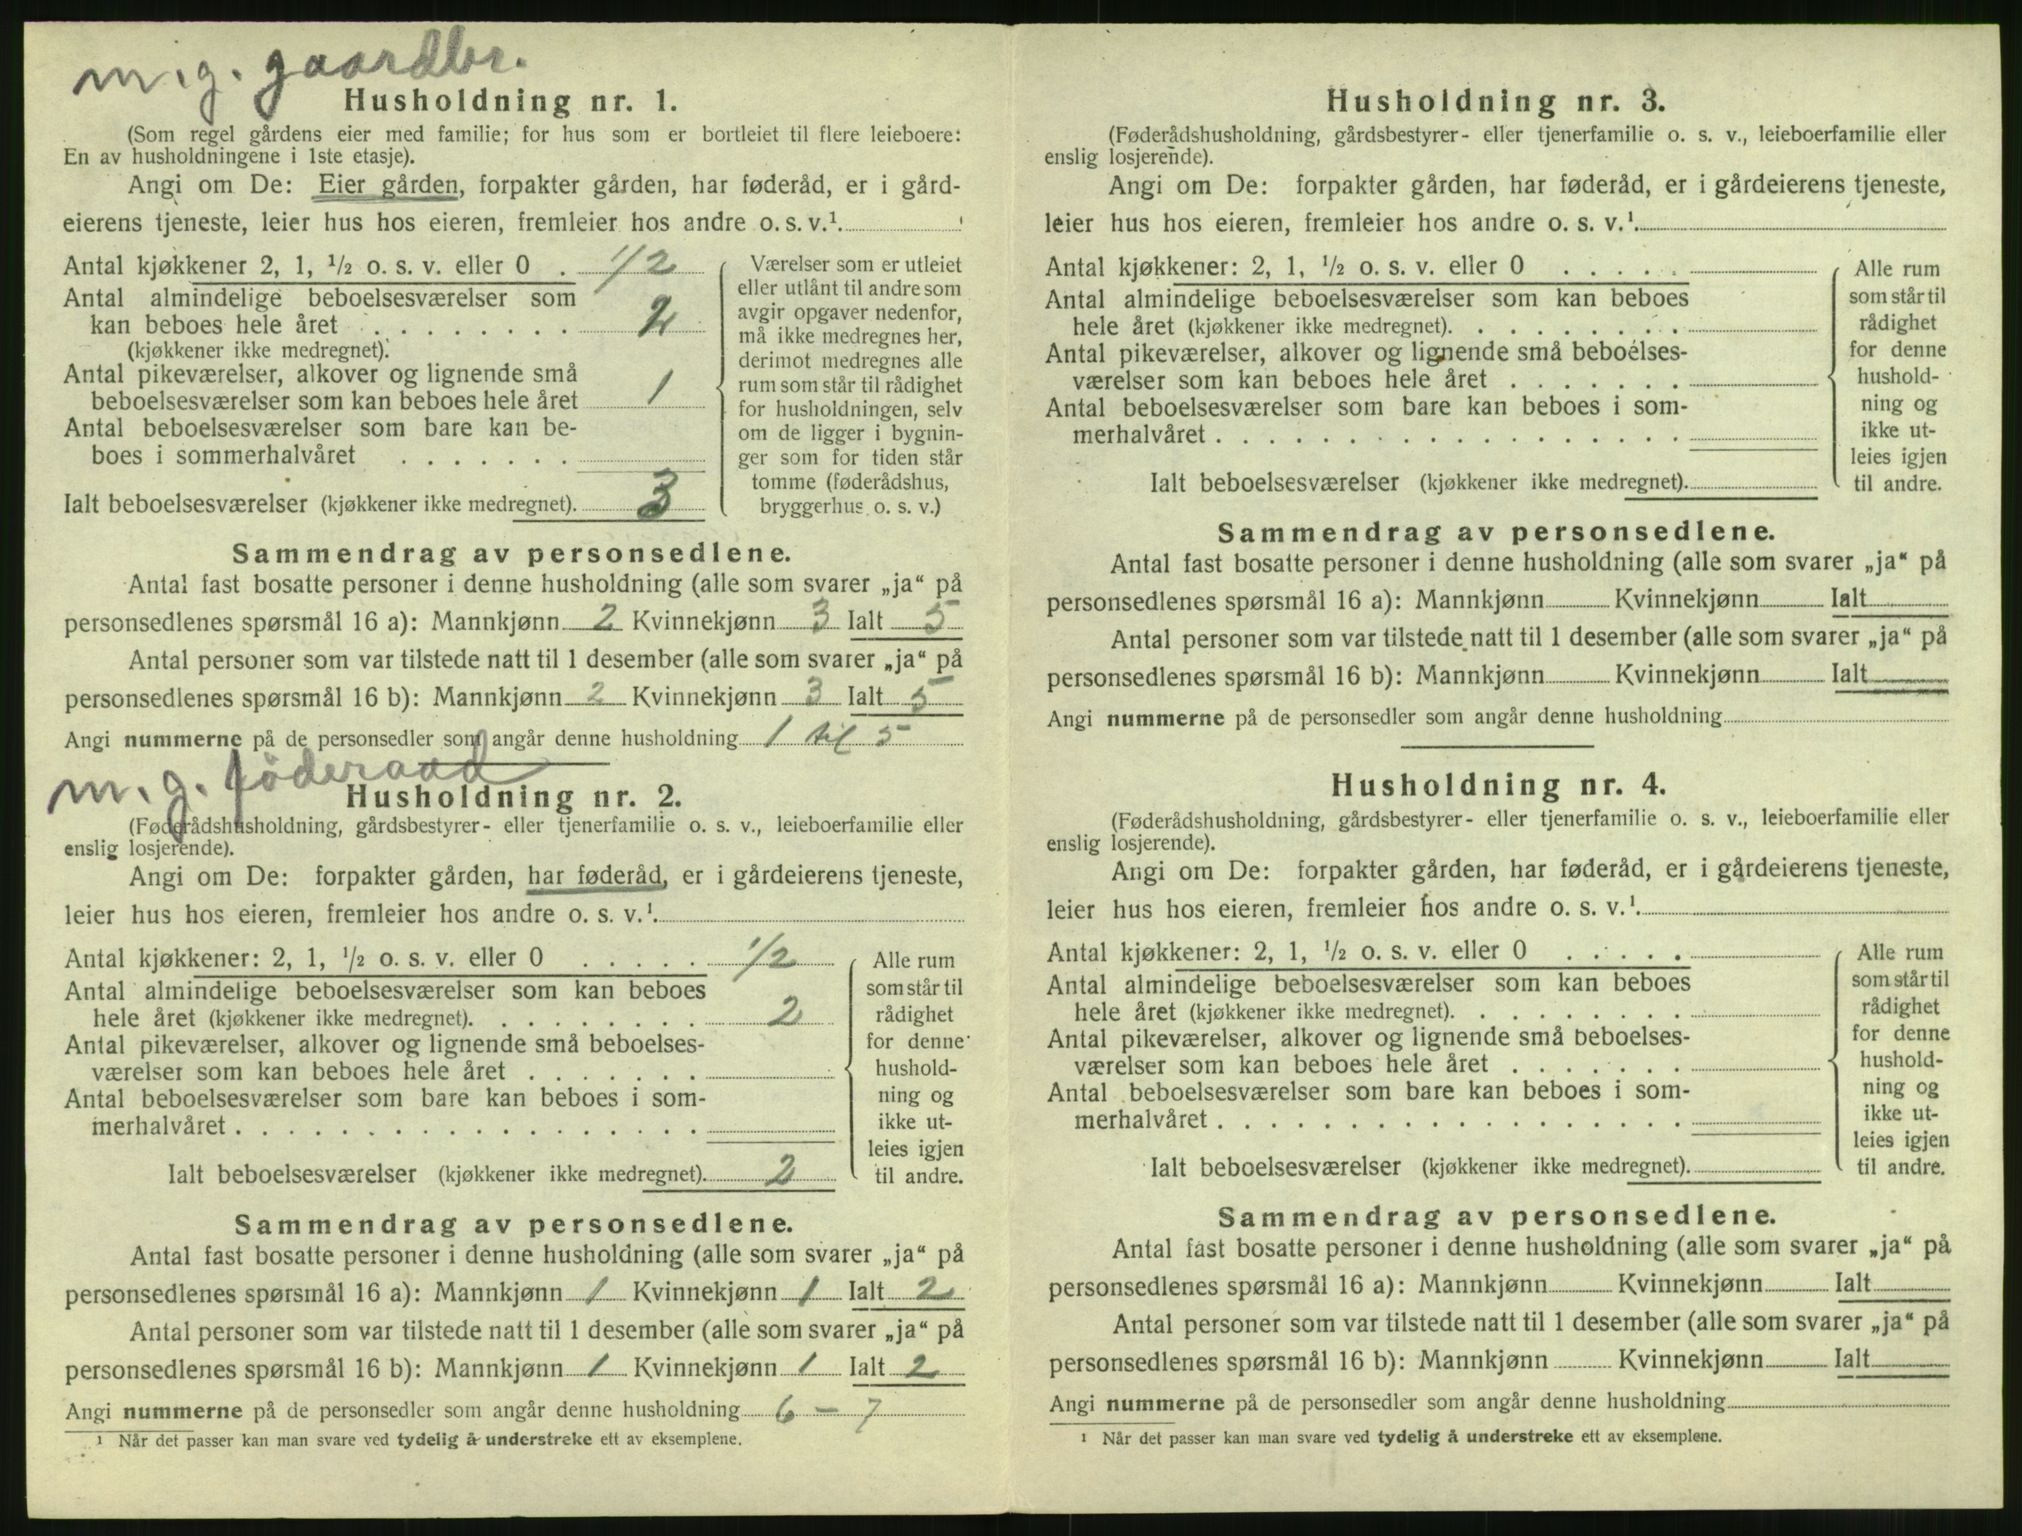 m. g. gaardbr.
Husholdning nr. 1.
(Som regel gårdens eier med familie; for hus som er bortleiet til flere leieboere:
En av husholdningene i 1ste etasje).
Angi om De: Eier gården, forpakter gården, har føderåd, er i gård-
eierens tjeneste, leier hus hos eieren, fremleier hos andre o. s. v.¹.
Antal kjøkkener 2, 1, ½ o. s. v. eller 0 . 1/2
Antal almindelige beboelsesværelser som
kan beboes hele året . . . . . . . . 2
(kjøkkener ikke medregnet).
Antal pikeværelser, alkover og lignende små
beboelsesværelser som kan beboes hele året 1
Antal beboelsesværelser som bare kan be-
boes i sommerhalvåret . . . . . . .
Ialt beboelsesværelser (kjøkkener ikke medregnet). 3
Værelser som er utleiet
eller utlånt til andre som
avgir opgaver nedenfor,
må ikke medregnes her,
derimot medregnes alle
rum som står til rådighet
for husholdningen, selv
om de ligger i bygnin-
ger som for tiden står
tomme (føderådshus,
bryggerhus o. s. v.)
Sammendrag av personsedlene.
Antal fast bosatte personer i denne husholdning (alle som svarer „ja“ på
personsedlenes spørsmål 16 a): Mannkjønn 2 Kvinnekjønn 3 Ialt 5
Antal personer som var tilstede natt til 1 desember (alle som svarer „ja“ på
personsedlenes spørsmål 16 b): Mannkjønn 2 Kvinnekjønn 3 Ialt 5
Angi nummerne på de personsedler som angår denne husholdning 1 til 5
m. g. føderaad
Husholdning nr. 2.
(Føderådshusholdning, gårdsbestyrer- eller tjenerfamilie o. s. v., leieboerfamilie eller
enslig losjerende).
Angi om De: forpakter gården, har føderåd, er i gårdeierens tjeneste,
leier hus hos eieren, fremleier hos andre o. s. v.¹.
Antal kjøkkener: 2, 1, ½ o. s. v. eller 0 . . . . . 1/2
Antal almindelige beboelsesværelser som kan beboes
hele året (kjøkkener ikke medregnet). . . . . . . . . 2
Antal pikeværelser, alkover og lignende små beboelses-
værelser som kan beboes hele året . . . . . . .
Antal beboelsesværelser som bare kan beboes i som-
merhalvåret . . . . . . . . . . . . . . . . . .
Ialt beboelsesværelser (kjøkkener ikke medregnet). 2
Alle rum
som står til
rådighet
for denne
hushold-
ning og
ikke ut-
leies igjen
til andre.
Sammendrag av personsedlene.
Antal fast bosatte personer i denne husholdning (alle som svarer „ja“ på
personsedlenes spørsmål 16 a): Mannkjønn 1 Kvinnekjønn 1 Ialt 2
Antal personer som var tilstede natt til 1 desember (alle som svarer „ja“ på
personsedlenes spørsmål 16 b): Mannkjønn 1 Kvinnekjønn 1 Ialt 2
Angi nummerne på de personsedler som angår denne husholdning 6 - 7
¹ Når det passer kan man svare ved tydelig å understreke ett av eksemplene.
Husholdning nr. 3.
(Føderådshusholdning, gårdsbestyrer- eller tjenerfamilie o. s. v., leieboerfamilie eller
enslig losjerende).
Angi om De: forpakter gården, har føderåd, er i gårdeierens tjeneste,
leier hus hos eieren, fremleier hos andre o. s. v.¹.
Antal kjøkkener: 2, 1, ½ o. s. v. eller 0 . . . . .
Antal almindelige beboelsesværelser som kan beboes
hele året (kjøkkener ikke medregnet). . . . . . . . .
Antal pikeværelser, alkover og lignende små beboelses-
værelser som kan beboes hele året . . . . . . .
Antal beboelsesværelser som bare kan beboes i som-
merhalvåret . . . . . . . . . . . . . . . . . .
Ialt beboelsesværelser (kjøkkener ikke medregnet).
Alle rum
som står til
rådighet
for denne
hushold-
ning og
ikke ut-
leies igjen
til andre.
Sammendrag av personsedlene.
Antal fast bosatte personer i denne husholdning (alle som svarer „ja“ på
personsedlenes spørsmål 16 a): Mannkjønn Kvinnekjønn Ialt
Antal personer som var tilstede natt til 1 desember (alle som svarer „ja“ på
personsedlenes spørsmål 16 b): Mannkjønn Kvinnekjønn Ialt
Angi nummerne på de personsedler som angår denne husholdning
Husholdning nr. 4.
(Føderådshusholdning, gårdsbestyrer- eller tjenerfamilie o. s. v., leieboerfamilie eller
enslig losjerende).
Angi om De: forpakter gården, har føderåd, er i gårdeierens tjeneste,
leier hus hos eieren, fremleier hos andre o. s. v.¹.
Antal kjøkkener: 2, 1, ½ o. s. v. eller 0 . . . . .
Antal almindelige beboelsesværelser som kan beboes
hele året (kjøkkener ikke medregnet). . . . . . . . .
Antal pikeværelser, alkover og lignende små beboelses-
værelser som kan beboes hele året . . . . . . .
Antal beboelsesværelser som bare kan beboes i som-
merhalvåret . . . . . . . . . . . . . . . . . .
Ialt beboelsesværelser (kjøkkener ikke medregnet).
Alle rum
som står til
rådighet
for denne
hushold-
ning og
ikke ut-
leies igjen
til andre.
Sammendrag av personsedlene.
Antal fast bosatte personer i denne husholdning (alle som svarer „ja“ på
personsedlenes spørsmål 16 a): Mannkjønn Kvinnekjønn Ialt
Antal personer som var tilstede natt til 1 desember (alle som svarer „ja“ på
personsedlenes spørsmål 16 b): Mannkjønn Kvinnekjønn Ialt
Angi nummerne på de personsedler som angår denne husholdning
¹ Når det passer kan man svare ved tydelig å understreke ett av eksemplene.